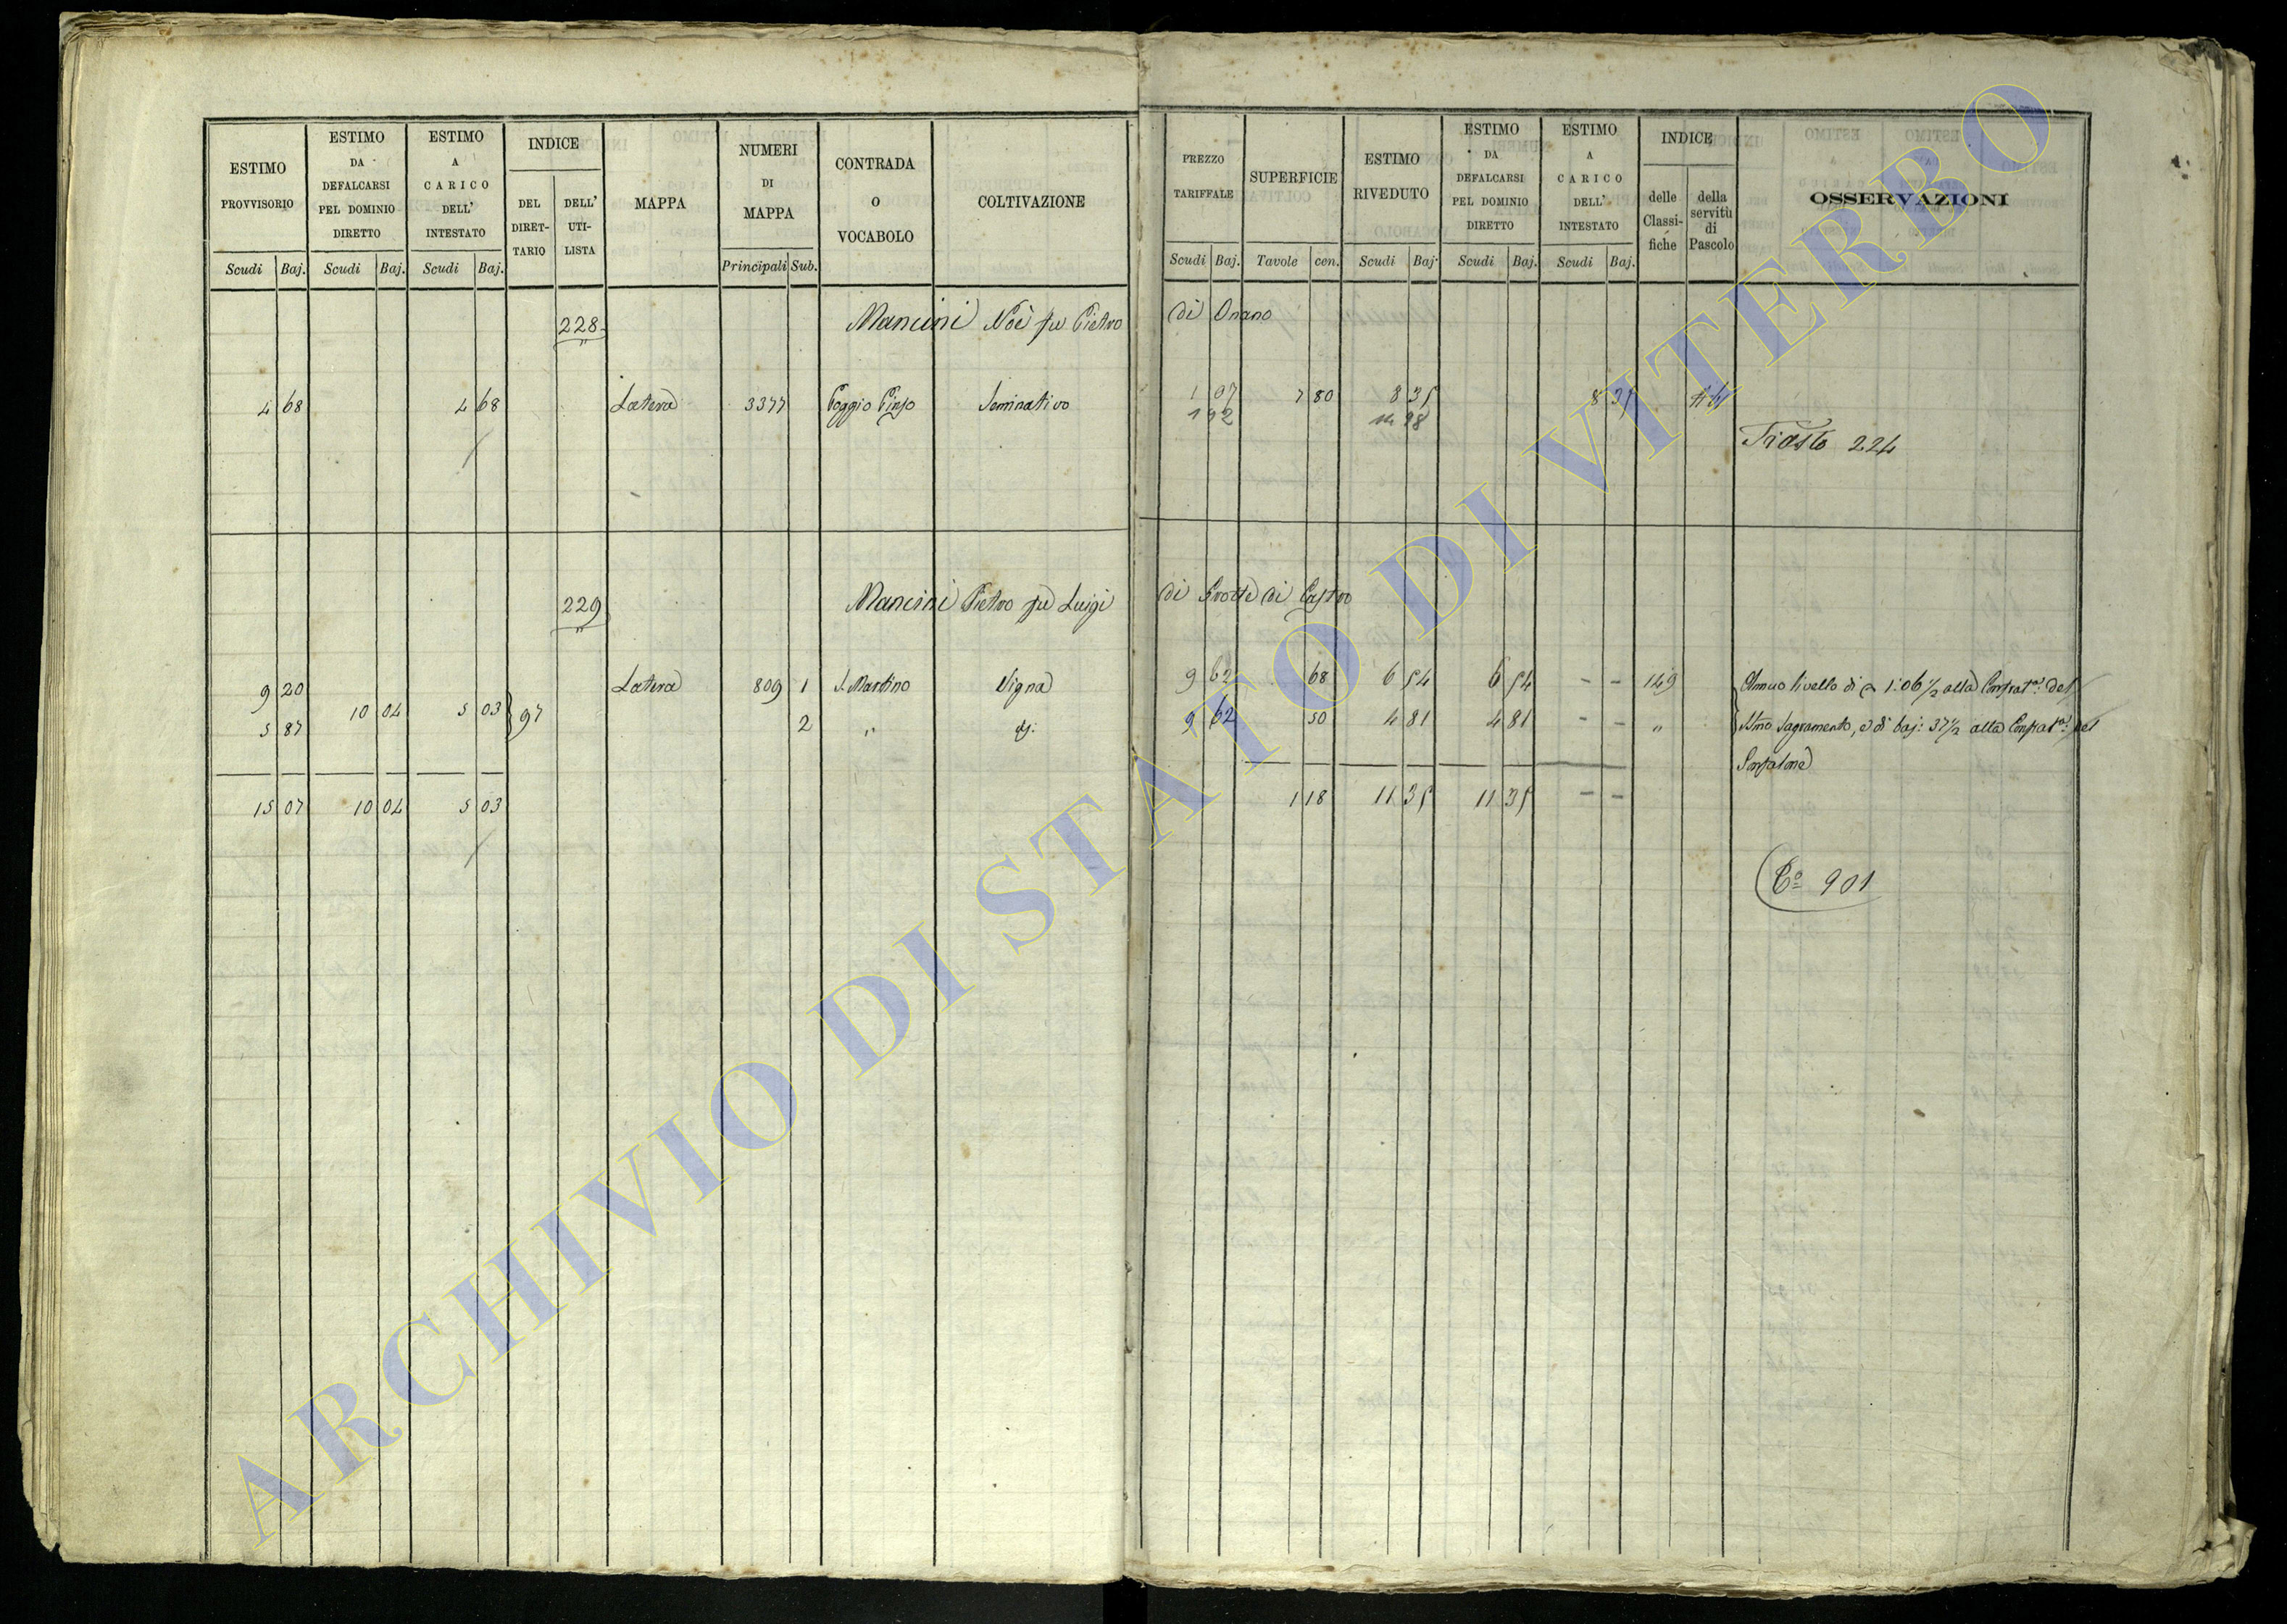 ESTIMO PROVVISORIO
Scudi Baj.
ESTIMO DA DEFALCARSI PEL DOMINIO DIRETTO
Scudi Baj.
ESTIMO A CARICO DELL' INTESTATO
Scudi Baj.
INDICE
DEL DIRET- TARIO
DELL' UTI- LISTA
MAPPA
NUMERI DI MAPPA
Principali Sub.
CONTRADA O VOCABOLO
COLTIVAZIONE
PREZZO TARIFFALE
Scudi Baj.
SUPERFICIE
Tavole cen.
ESTIMO RIVEDUTO
Scudi Baj.
ESTIMO DA DEFALCARSI PEL DOMINIO DIRETTO
Scudi Baj.
ESTIMO A CARICO DELL' INTESTATO
Scudi Baj.
INDICE
delle Classi- fiche
della servitù di Pascolo
OSSERVAZIONI
228 Mancini Noè fu Pietro di Onano
4 68 4 68 Latera 3377 Poggio Seminativo 1 07 7 80 8 35 8 35
1 92 14 98
Triasto 224
229 Mancini Pietro fu Luigi di Grotte di Castro
9 20 Latera 809 1 S. Martino Vigna 9 62 68 6 54 6 54 - - 149 Annuo livello di 1:06 ½ alla Confrat.a del
10 04 5 03 97
5 87 2 " di: 9 62 50 4 81 4 81 - - " SSmo Sagramento, e di baj: 37 ½ alla Confrat.a del
Gonfalone
15 07 10 04 5 03 1 18 11 35 11 35 - -
Co 901
ARCHIVIO DI STATO DI VITERBO